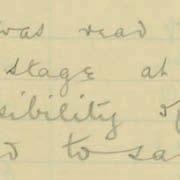 was read
stage at
sibility of
d to sa